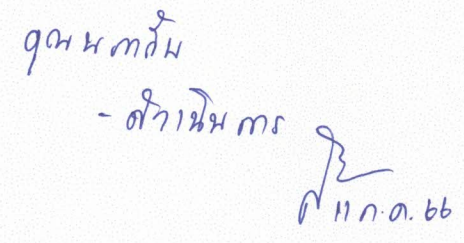 คุณนภาลัย
- ดำเนินการ
11 ก.ค. 66